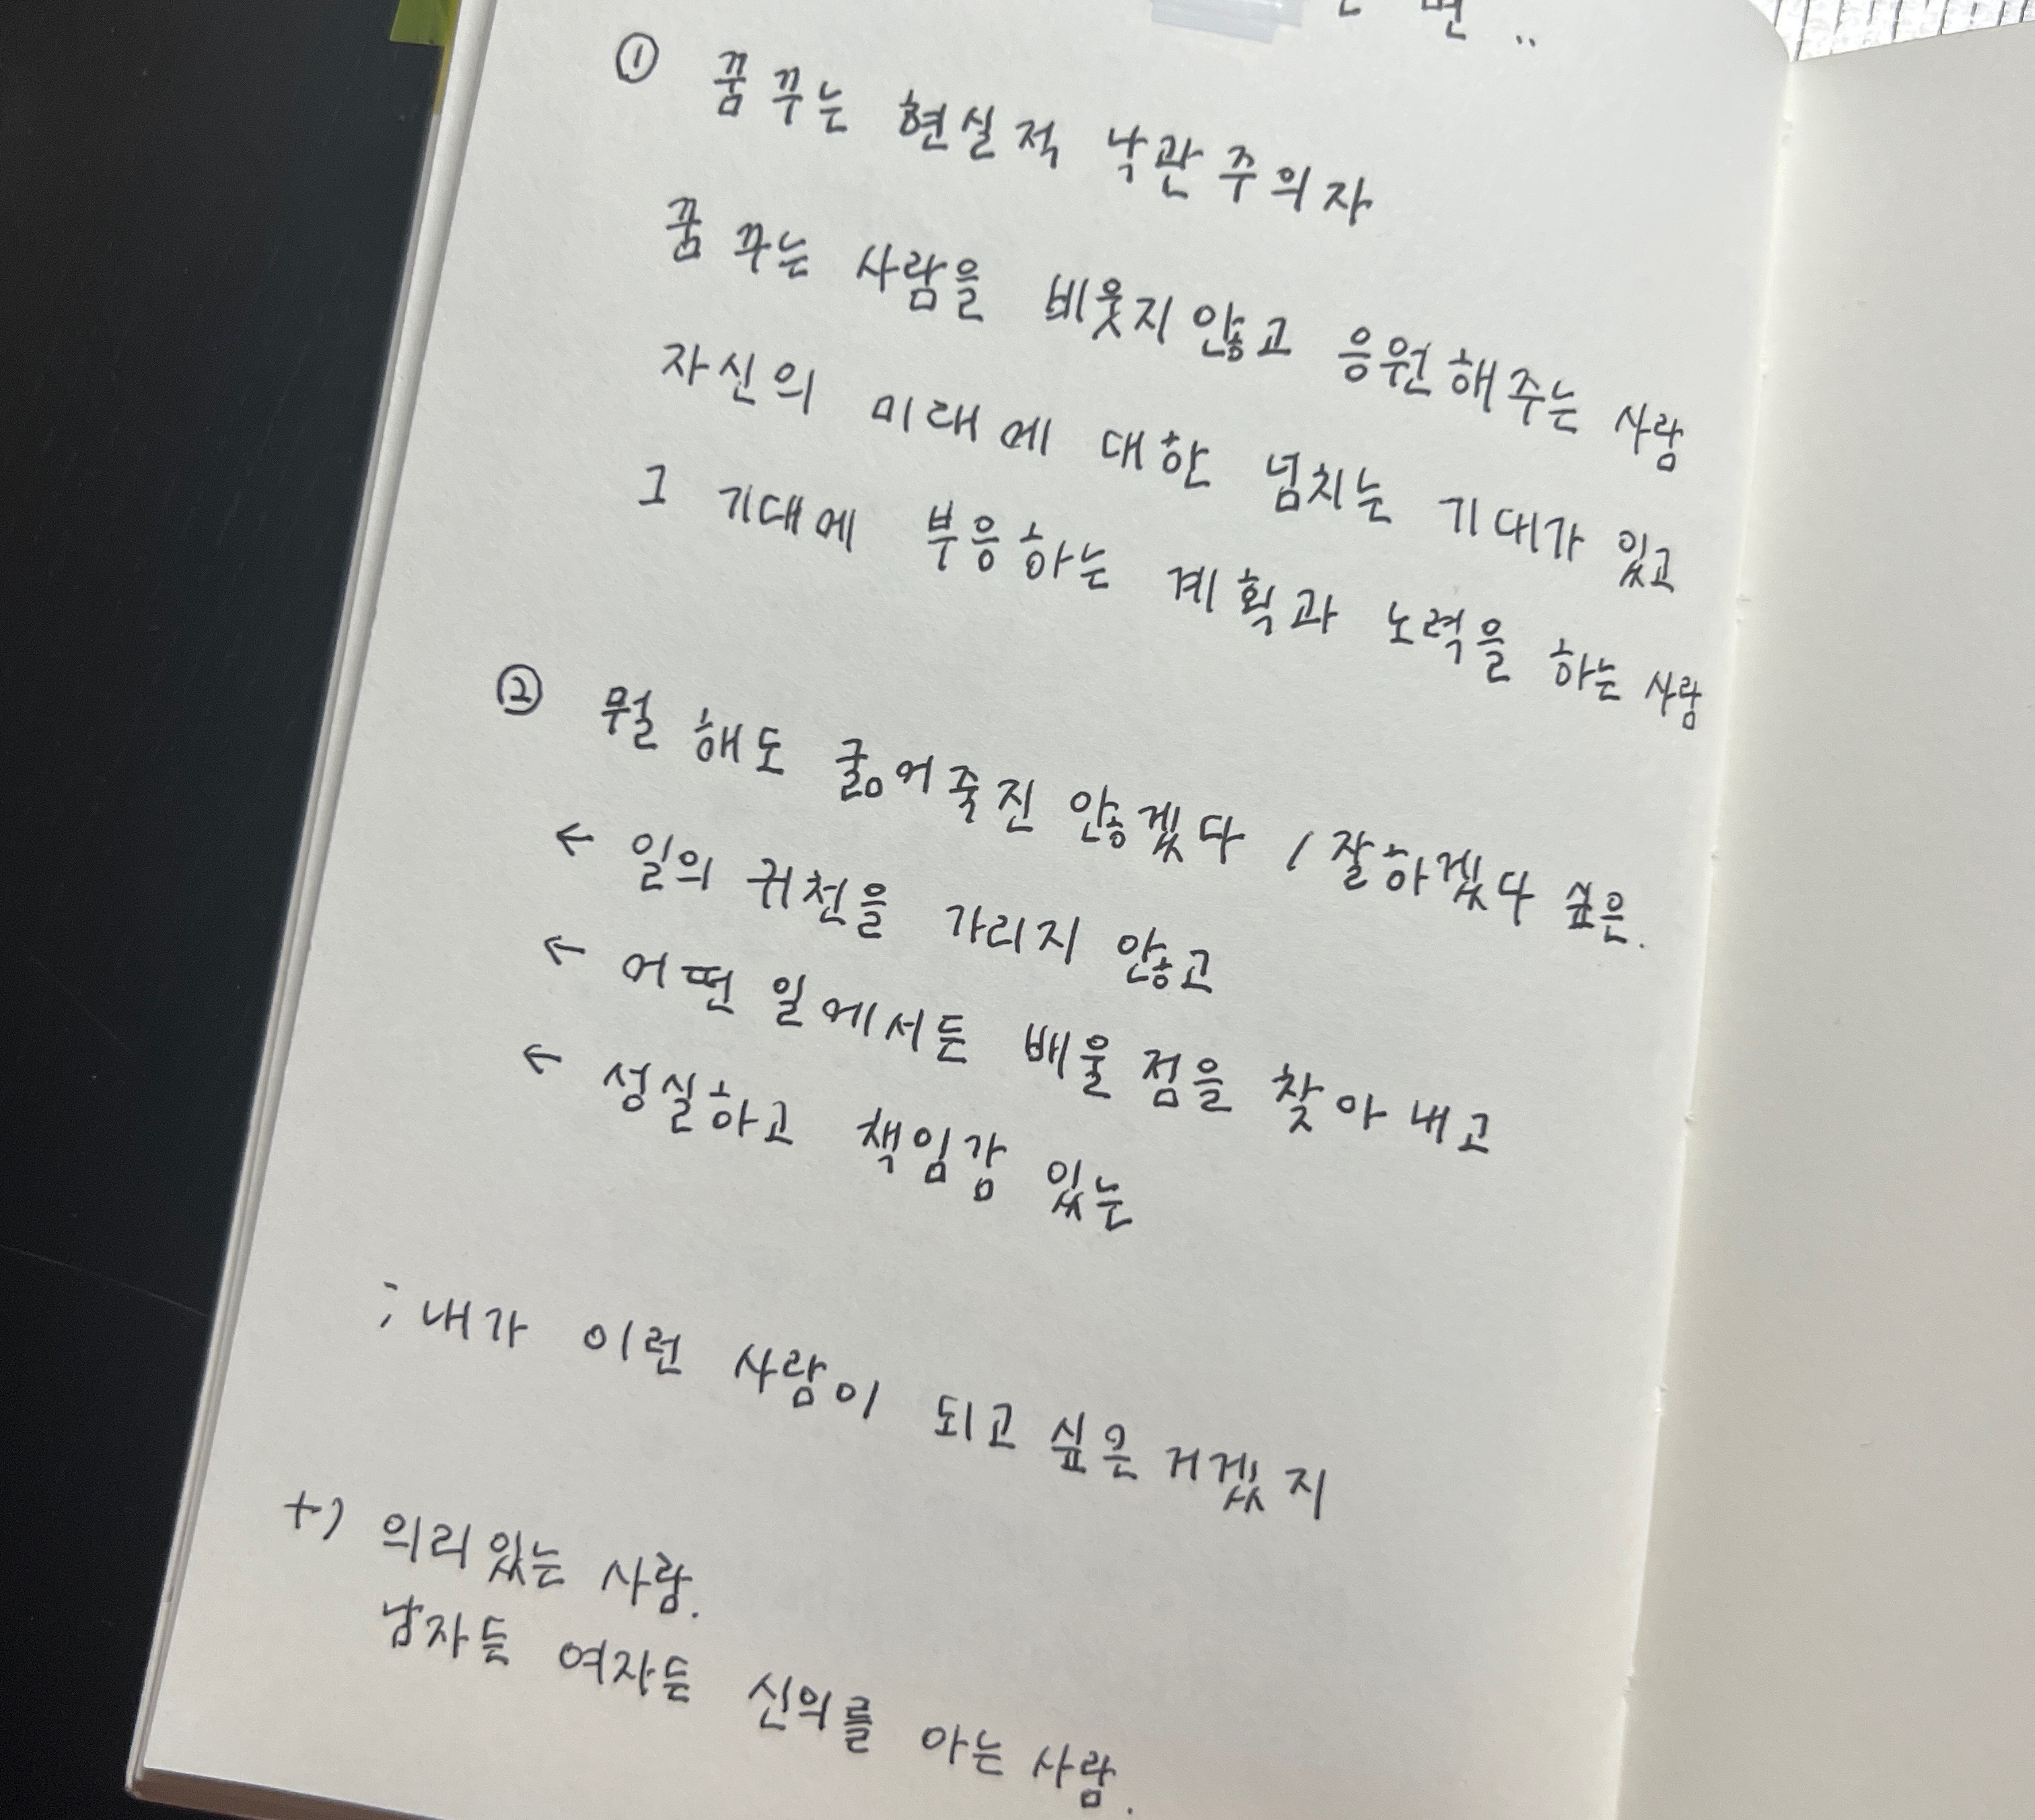 면..
① 꿈꾸는 현실적 낙관주의자
꿈꾸는 사람을 비웃지않고 응원해주는 사람
자신의 미래에 대한 넘치는 기대가 있고
그 기대에 부응하는 계획과 노력을 하는 사람
② 뭘 해도 굶어죽진 않겠다 / 잘하겠다 싶은.
← 일의 귀천을 가리지 않고
← 어떤 일에서든 배울 점을 찾아내고
← 성실하고 책임감 있는
; 내가 이런 사람이 되고싶은거겠지
+) 의리있는 사람.
남자든 여자든 신의를 아는 사람.